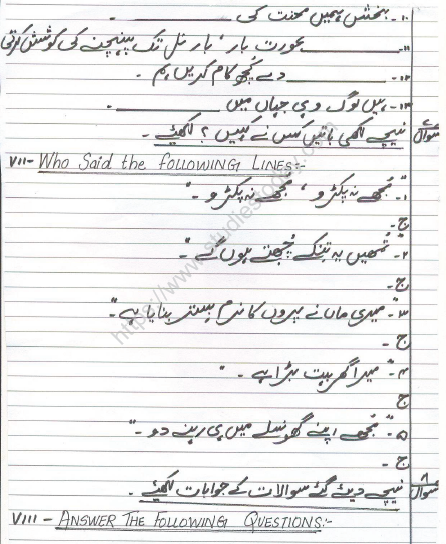 ۱۰۔ بخشش ہمیں محنت کی ________
۱۱۔ ________ بھورت بار، بار تل تک پہنچنے کی کوشش کرتی
۱۲۔ ________ دے کچھ کام کریں ہم۔
۱۳۔ ہیں لوگ وہی جہاں میں ________۔
سوال نیچے لکھی باتیں کس نے کہیں؟ لکھئے۔
VII- WHO SAID THE FOLLOWING LINES:-
۱۔ "مُجھے نہ پکڑو، مُجھے نہ پکڑو۔"
ج۔
۲۔ "تُمھیں یہ تِنکے چُبھتے ہوں گے"
ج۔
۳۔ "میری ماں نے پروں کا نرم بستر بنایا ہے۔"
ج۔
۴۔ "میرا گھر بہت بڑا ہے۔"
ج
۵۔ "مُجھے اپنے گھونسلے میں ہی رہنے دو۔"
ج۔
سوال نیچے دیئے گئے سوالات کے جوابات لکھیئے۔
VIII- ANSWER THE FOLLOWING QUESTIONS:-
https://www.studiestoday.com